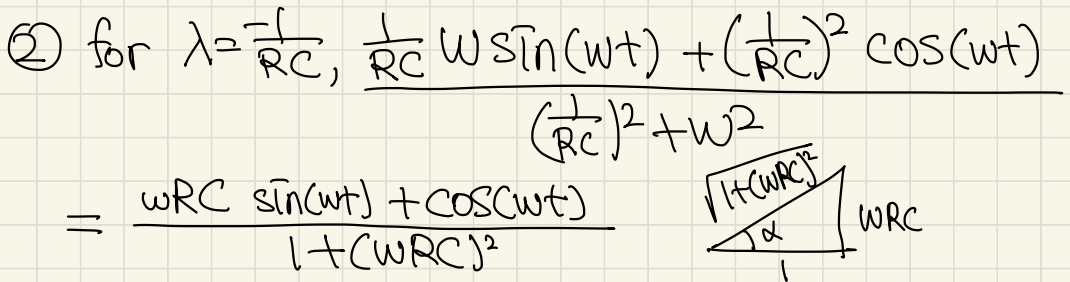 ② for λ = -1/RC, (1/RC W sin(wt) + (1/RC)² cos(wt)) / ((1/RC)² + W²)
= (wRC sin(wt) + cos(wt)) / (1+(WRC)²)
√(1+(WRC)²)
α
WRC
1